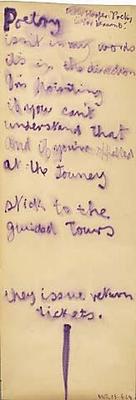 Poetry
isn't in my words
it's in the direction
I'm pointing
if you can't
understand that
and if you're
at the Journey
stick to the
guided tours
they issue return
tickets.